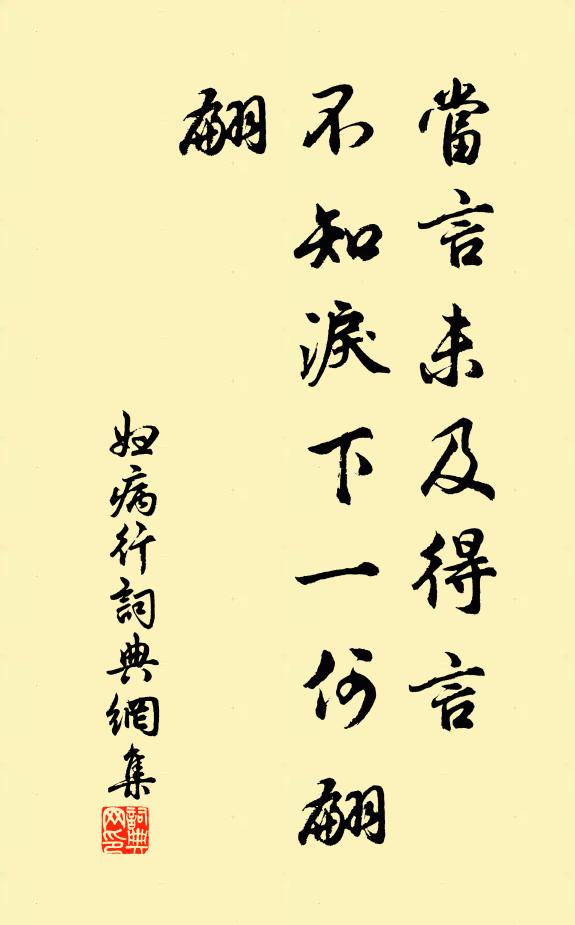 當言未及得言
不知淚下一何翩
翩
妇病行詞典網集
詞典网印